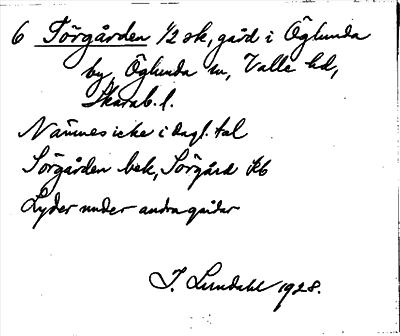 6 Sörgården 1/2 sk, gård i Öglunda
by, Öglunda sn, Valle hd,
Skarab. l.
Nämnes icke i dagl. tal
Sörgården bek, Sörgård kb
Lyder under andra gårdar
J. Lundahl 1928.